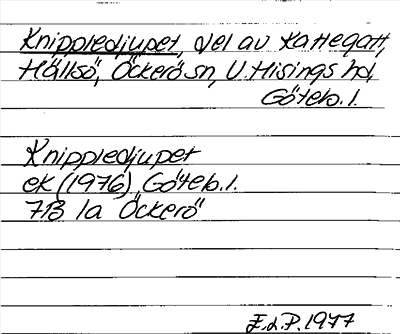 Knippledjupet, del av Kattegatt,
Hällsö, Öckerö sn, V. Hisings hd,
Göteb. l.
Knippledjupet
ek (1976) Göteb. l.
7B 1a Öckerö
E.d.P. 1977